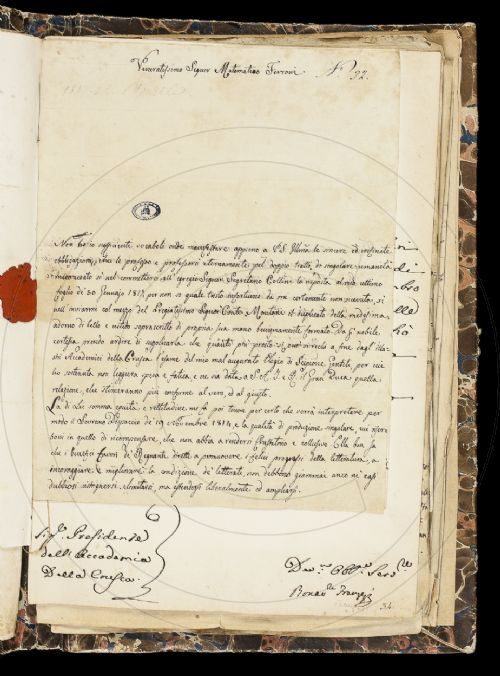 Veneratissimo Signor Matematico Ferroni
Nº 32.
Non trovo sufficienti vocaboli onde manifestare appieno a V.S. Illma le sincere ed infinite
obbligazioni, che le professo e professerò eternamente pel doppio tratto, di singolare umanità
comunicato sì nel commettere all' egregio Signor Segretario Collini la risposta al mio ultimo
foglio de' 30 Gennajo 1817 per non so quale tristo infortunio da me certamente non ricevuta, sì
nell' inviarmi col mezzo del Pregiatissimo Signor Conte Montani il duplicato della medesima
adorno di lette e note soprascritte di propria sua mano benignamente formato. Da sì nobile
cortesia prendo ardire di supplicarla che quanto più presto si può riveda a fine dagli Illu-
stri Accademici della Crusca l' esame del mio mal augurato Elogio di Scipione Gentile, per cui
ho soltanto non leggiera spesa e fatica, e ne sia data a S.A.I. e R. il Gran Duca quella
relazione, che stimeranno più conforme al vero, ed al giusto.
La di Lei somma equità e rettitudine mi fa poi tenere per certo che vorrà interpretare per
modo il Sovrano Dispaccio de' 19 Novembre 1814, e la qualità di produzione singolare, ivi riser-
vata in quelle di ricompensare, che non abbia a rendersi frustraneo e collusivo. Ella ben sa
che i benefici favori de' Regnanti diretti a promuovere i felici progressi della letteratura, a
incoraggiare e migliorare la condizione de' letterati, non debbono giammai anco ne' casi
dubbiosi restringersi e limitarsi, ma estendersi liberalmente ed ampliarsi.
Sig. Presidente
dell' Accademia
Della Crusca
Dev.mo Obbl.mo Serv.re
34.